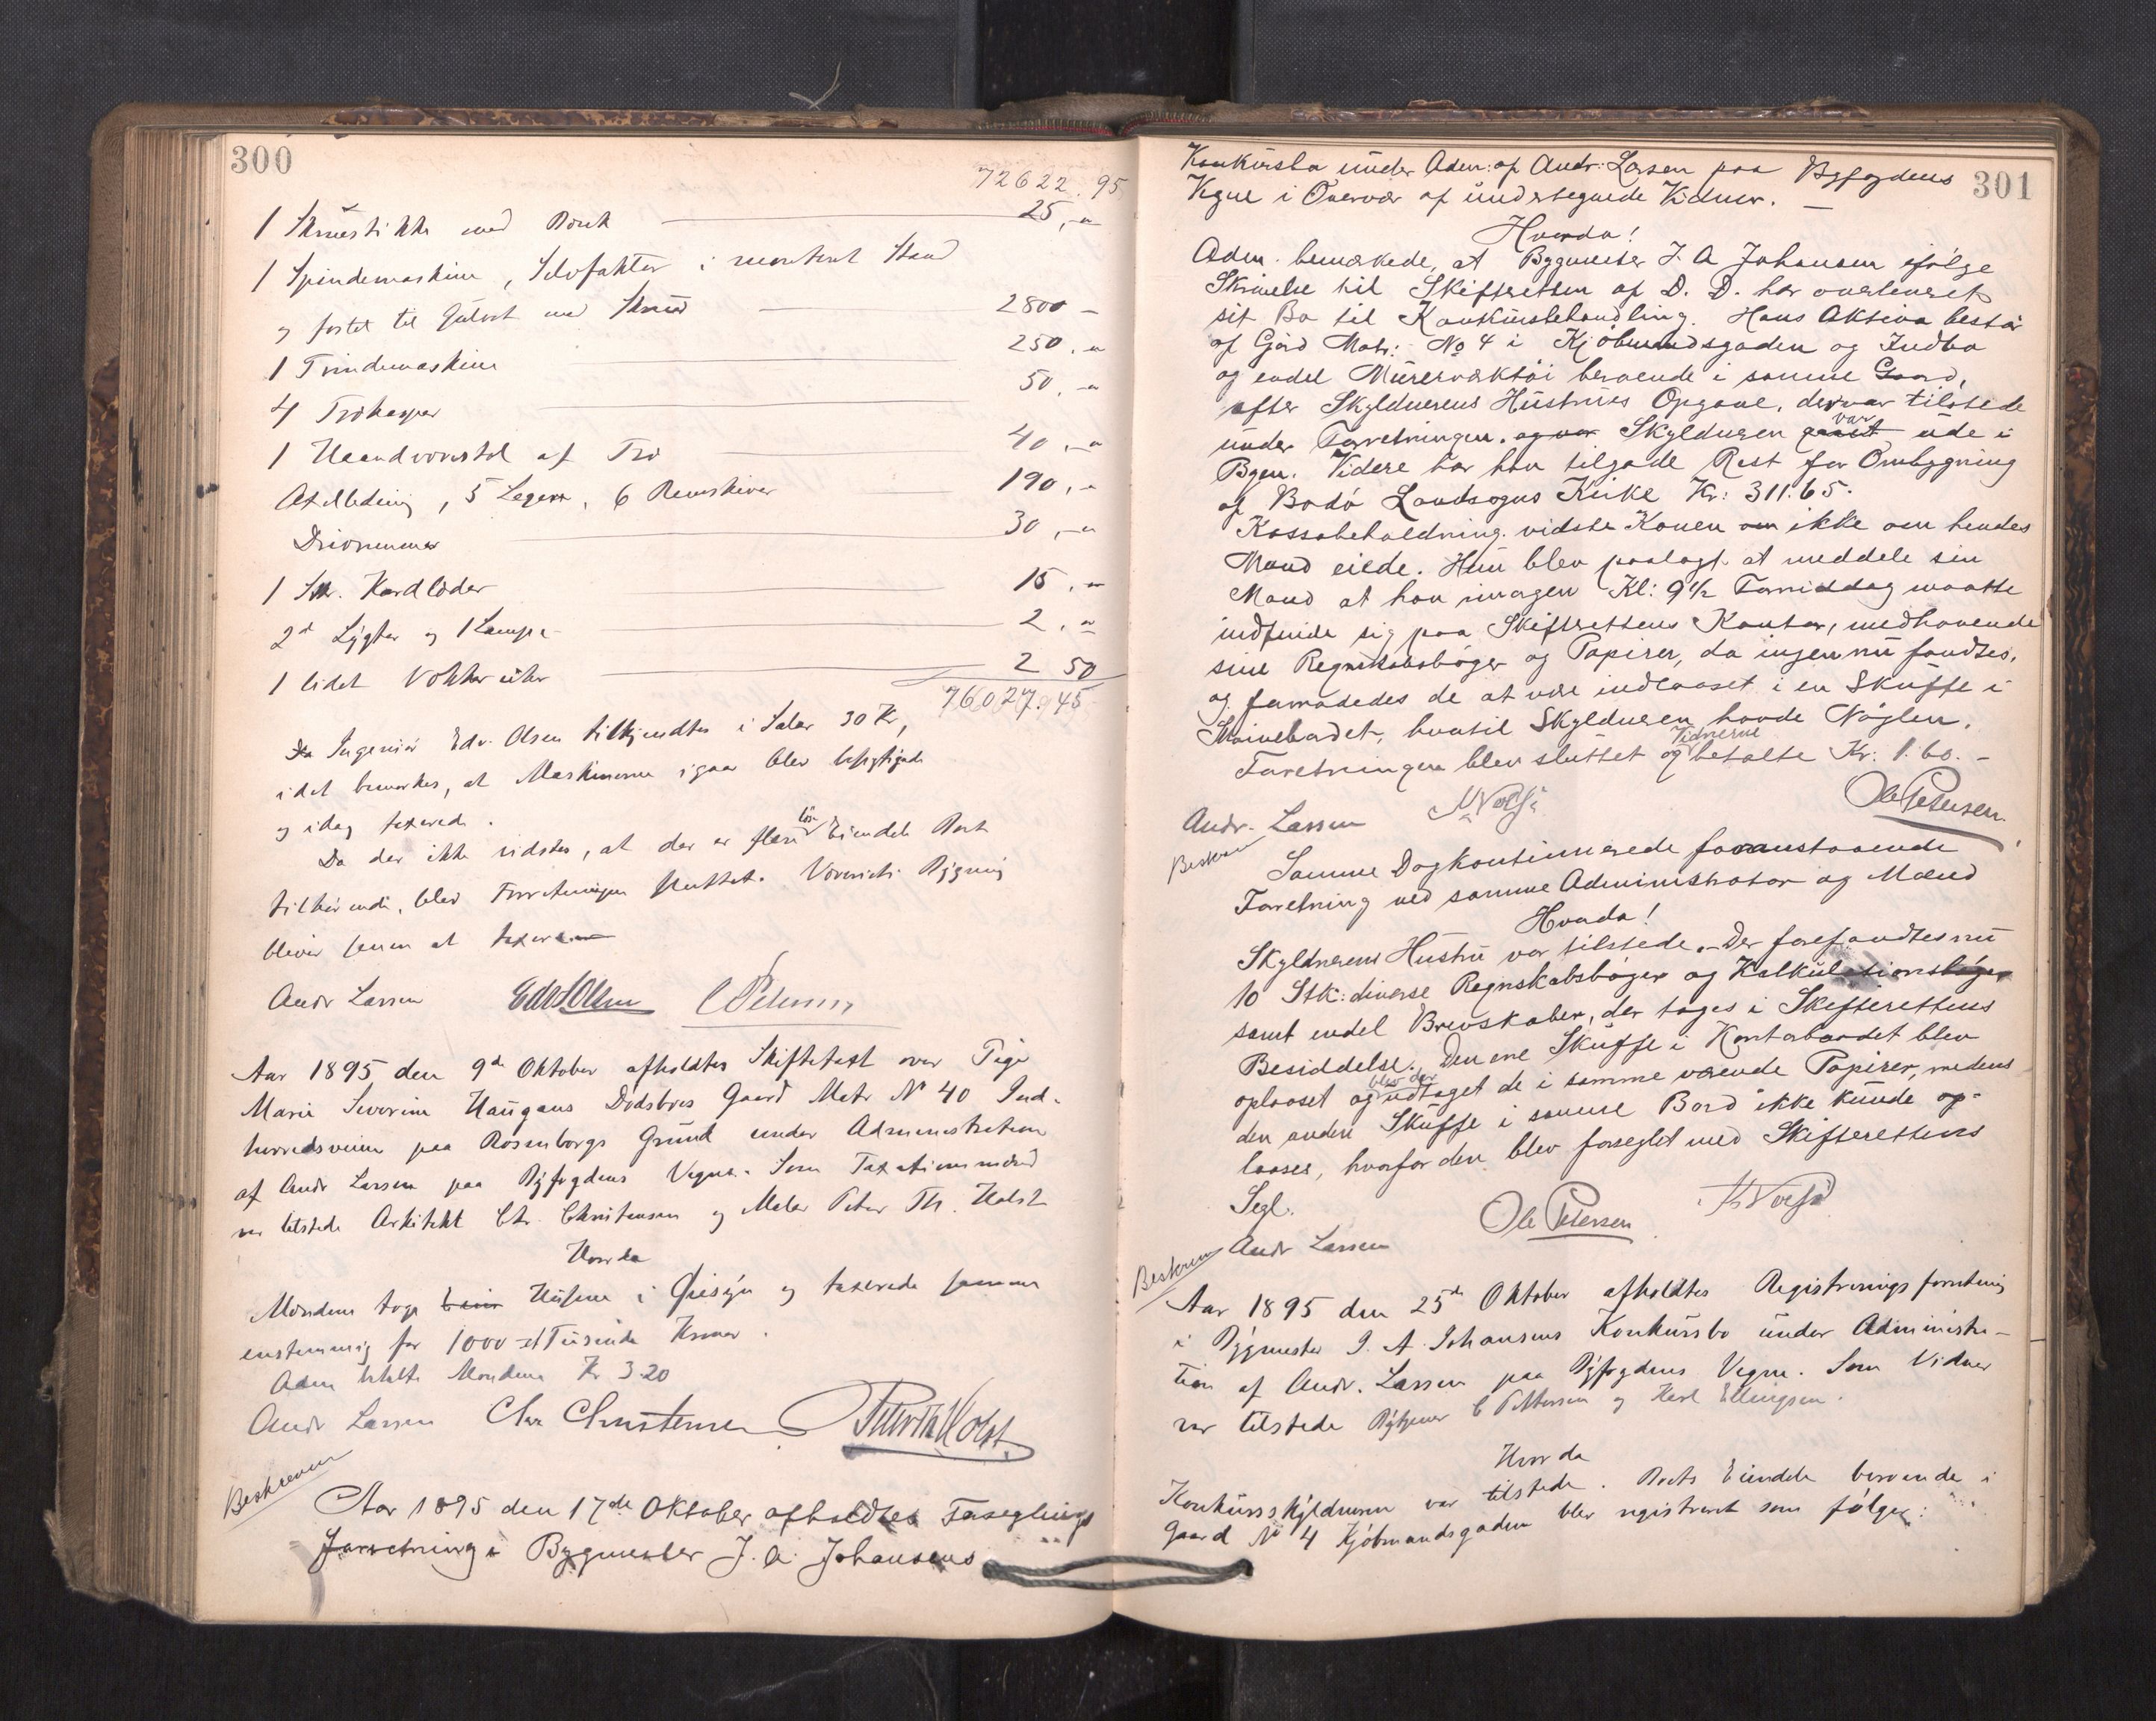 300
72622.95
1 Skruestikke med Bænk 25,-
1 Spindemaskine, Selvfaktor i montert Stand
og festet til Gulvet med Skrud 2800 -
1 Tvindemaskine 250.-
4 Trækasser 50.-
1 Haandvæverstol af Træ 40,-
Axelledning, 5 Legere, 6 Remskiver 190,-
Drivremmer 30,-
1 Stk. Kardlæder 15.-
2d Lygter og 1 Lampe 2.-
1 lidet Vækkerühr 2 50
76027.45
Ingeniør Edv. Olsen tilkjendtes i Salær 30 Kr,
idet bemærkes, at Maskinerne igaar blev besigtigede
og idag taxerede.
Da der ikke vidstes, at der er flere løse Eiendele Boet
tilhørende, blev Forretningen sluttet. Væveriets Bygning
bliver senere at taxere
Andr Larsen Edv Olsen C Petersen
Aar 1895 den 9de Oktober afholdtes Skiftetaxt over Pige
Marie Severine Haugans Dødsbos Gaard Matr No 40 Ind-
herredsveien paa Rosenborgs Grund under Administration
af Andr Larsen paa Byfogdens Vegne. Som Taxationsmænd
var tilstede Arkitekt Chr. Christensen og Maler Peter Th. Holst
Hvorda
Mændene toge Husene i Øiesyn og taxerede samme
enstemmig for 1000 - et Tusinde Kroner.
Adm betalte Mændene Kr 3.20
Andr Larsen Chr Christensen Peter Th Holst.
Beskreven
Aar 1895 den 17de Oktober afholdtes Forseglings
forretning i Bygmester J. A. Johansens
301
Konkursbo under Adm: af Andr: Larsen paa Byfogdens
Vegne i Overvær af undertegnede Vidner. -
Hvorda!
Adm. bemærkede, at Bygmester J. A Johansen ifølge
Skrivelse til Skifteretten af D. D. har overleveret
sit Bo til Konkursbehandling. Hans Aktiva består
af Gård Matr: No 4 i Kjøbmandsgaden og Indbo
og endel Murerværktøi beroende i samme Gaard,
efter Skyldnerens Hustrues Opgave, der var tilstede
under Forretningen. og var Skyldneren var ude i
Byen. Videre har han tilgode Rest for Ombygning
af Bodø Landsogns Kirke Kr: 311:65.
Kassabeholdning vidste Konen ikke om hendes
Mand eiede. Hun blev paalagt at meddele sin
Mand at han imorgen Kl: 9½ Formiddag maatte
indfinde sig paa Skifterettens Kontor, medhavende
sine Regnskabsbøger og Papirer, da ingen nu fandtes,
og formodedes de at være indlaaset i en Skuffe i
Skrivebordet, hvortil Skyldneren havde Nøglen.
Forretningen blev sluttet og Vidnerne betalte Kr: 1.60. -
Andr. Larsen Ole Petersen.
Beskreven
Samme Dag kontinuerede foranstaaende
Forretning ved samme Administrator og Mænd
Hvorda!
Skyldnerens Hustru var tilstede. - Der forefandtes nu
10 Stk: diverse Regnskabsbøger og Kalkulationsbøger
samt endel Brevskaber, der toges i Skifterettens
Besiddelse. Den ene Skuffe i Kontorbordet blev
oplaaset og blev der udtaget de i samme værende Papirer, medens
den anden Skuffe i samme Bord ikke kunde op-
laases, hvorfor den blev forseglet med Skifterettens
Segl.
Andr Larsen Ole Petersen
Beskreven
Aar 1895 den 25de Oktober afholdtes Registreringsforretning
i Bygmester J. A. Johansens Konkursbo under Administra-
tion af Andr. Larsen paa Byfogdens Vegne. Som Vidner
var tilstede C Pettersen og Karl Ellingsen.
Hvorda
Konkursskyldneren var tilstede. Boets Eiendele beroende i
Gaard No 4 Kjøbmandsgaden blev registreret som følger: